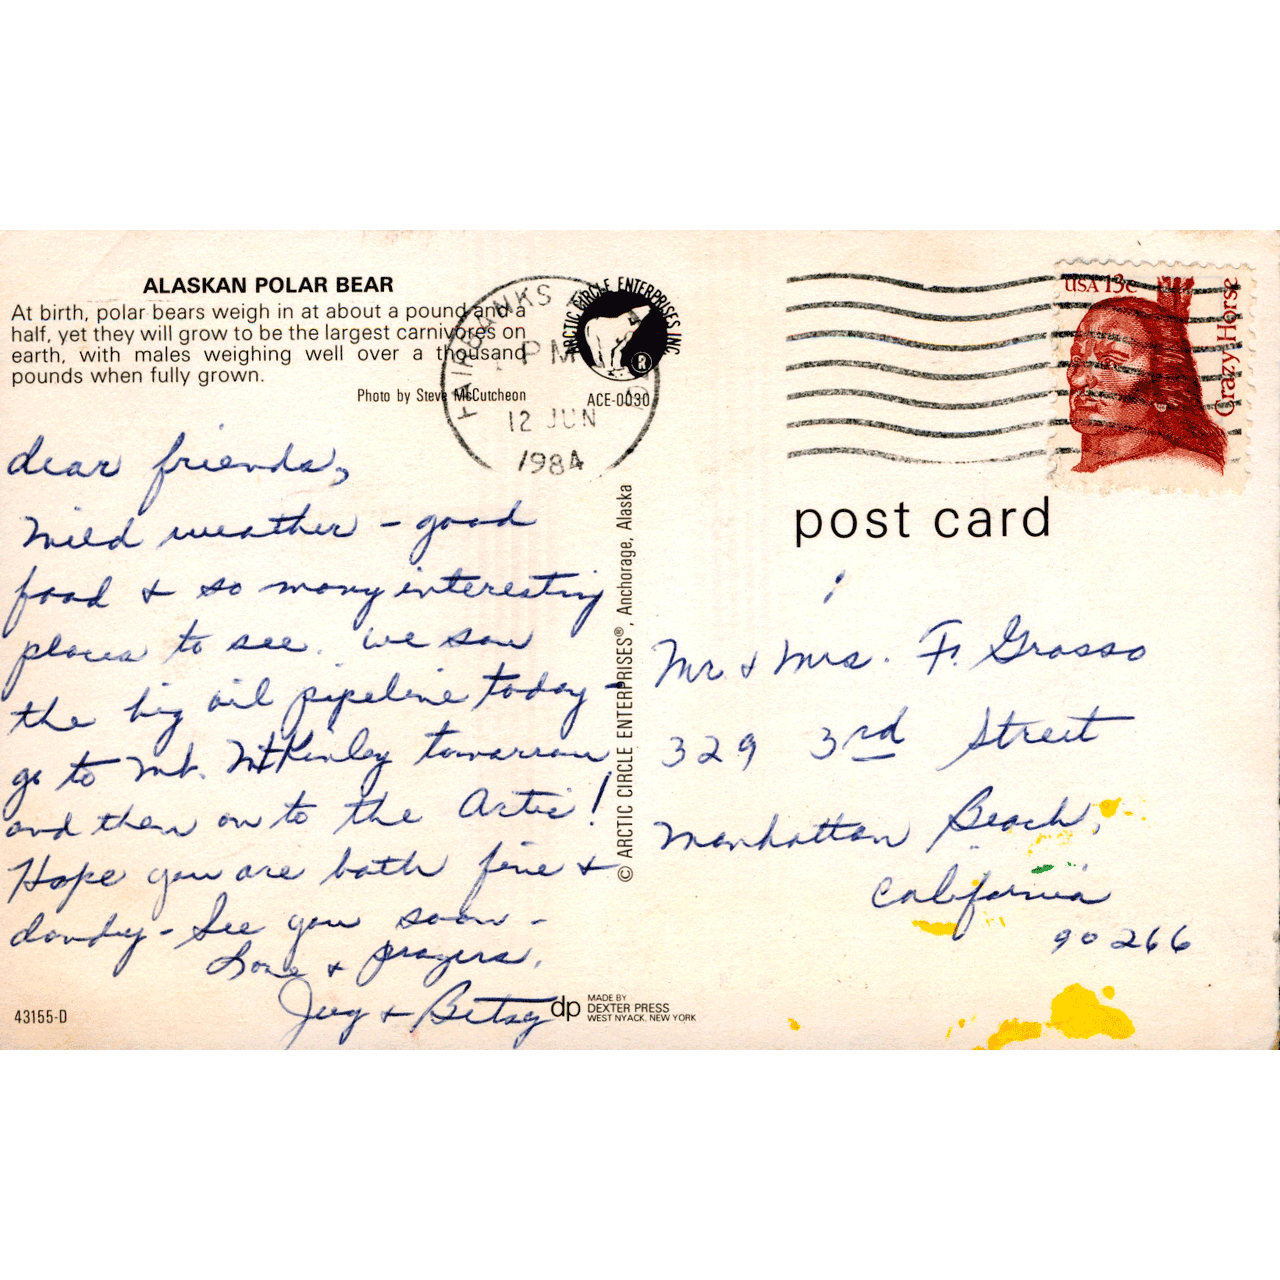 ALASKAN POLAR BEAR
At birth, polar bears weigh in at about a pound and a
half, yet they will grow to be the largest carnivores on
earth, with males weighing well over a thousand
pounds when fully grown.
Photo by Steve McCutcheon
ACE-0030
ARCTIC CIRCLE ENTERPRISES INC
®
FAIRBANKS
PM
12 JUN
1984
USA 13c
Crazy Horse
post card
dear friends,
Mild weather - good
food & so many interesting
places to see. We saw
the big oil pipeline today -
go to Mt. McKinley tomorrow
and then on to the Artic!
Hope you are both fine &
dandy - See you soon -
Love & prayers,
& Betsy
© ARCTIC CIRCLE ENTERPRISES®, Anchorage, Alaska
Mr. & Mrs. F. Grasso
329 3rd Street
Manhattan Beach,
California
90266
43155-D
dp
MADE BY
DEXTER PRESS
WEST NYACK, NEW YORK